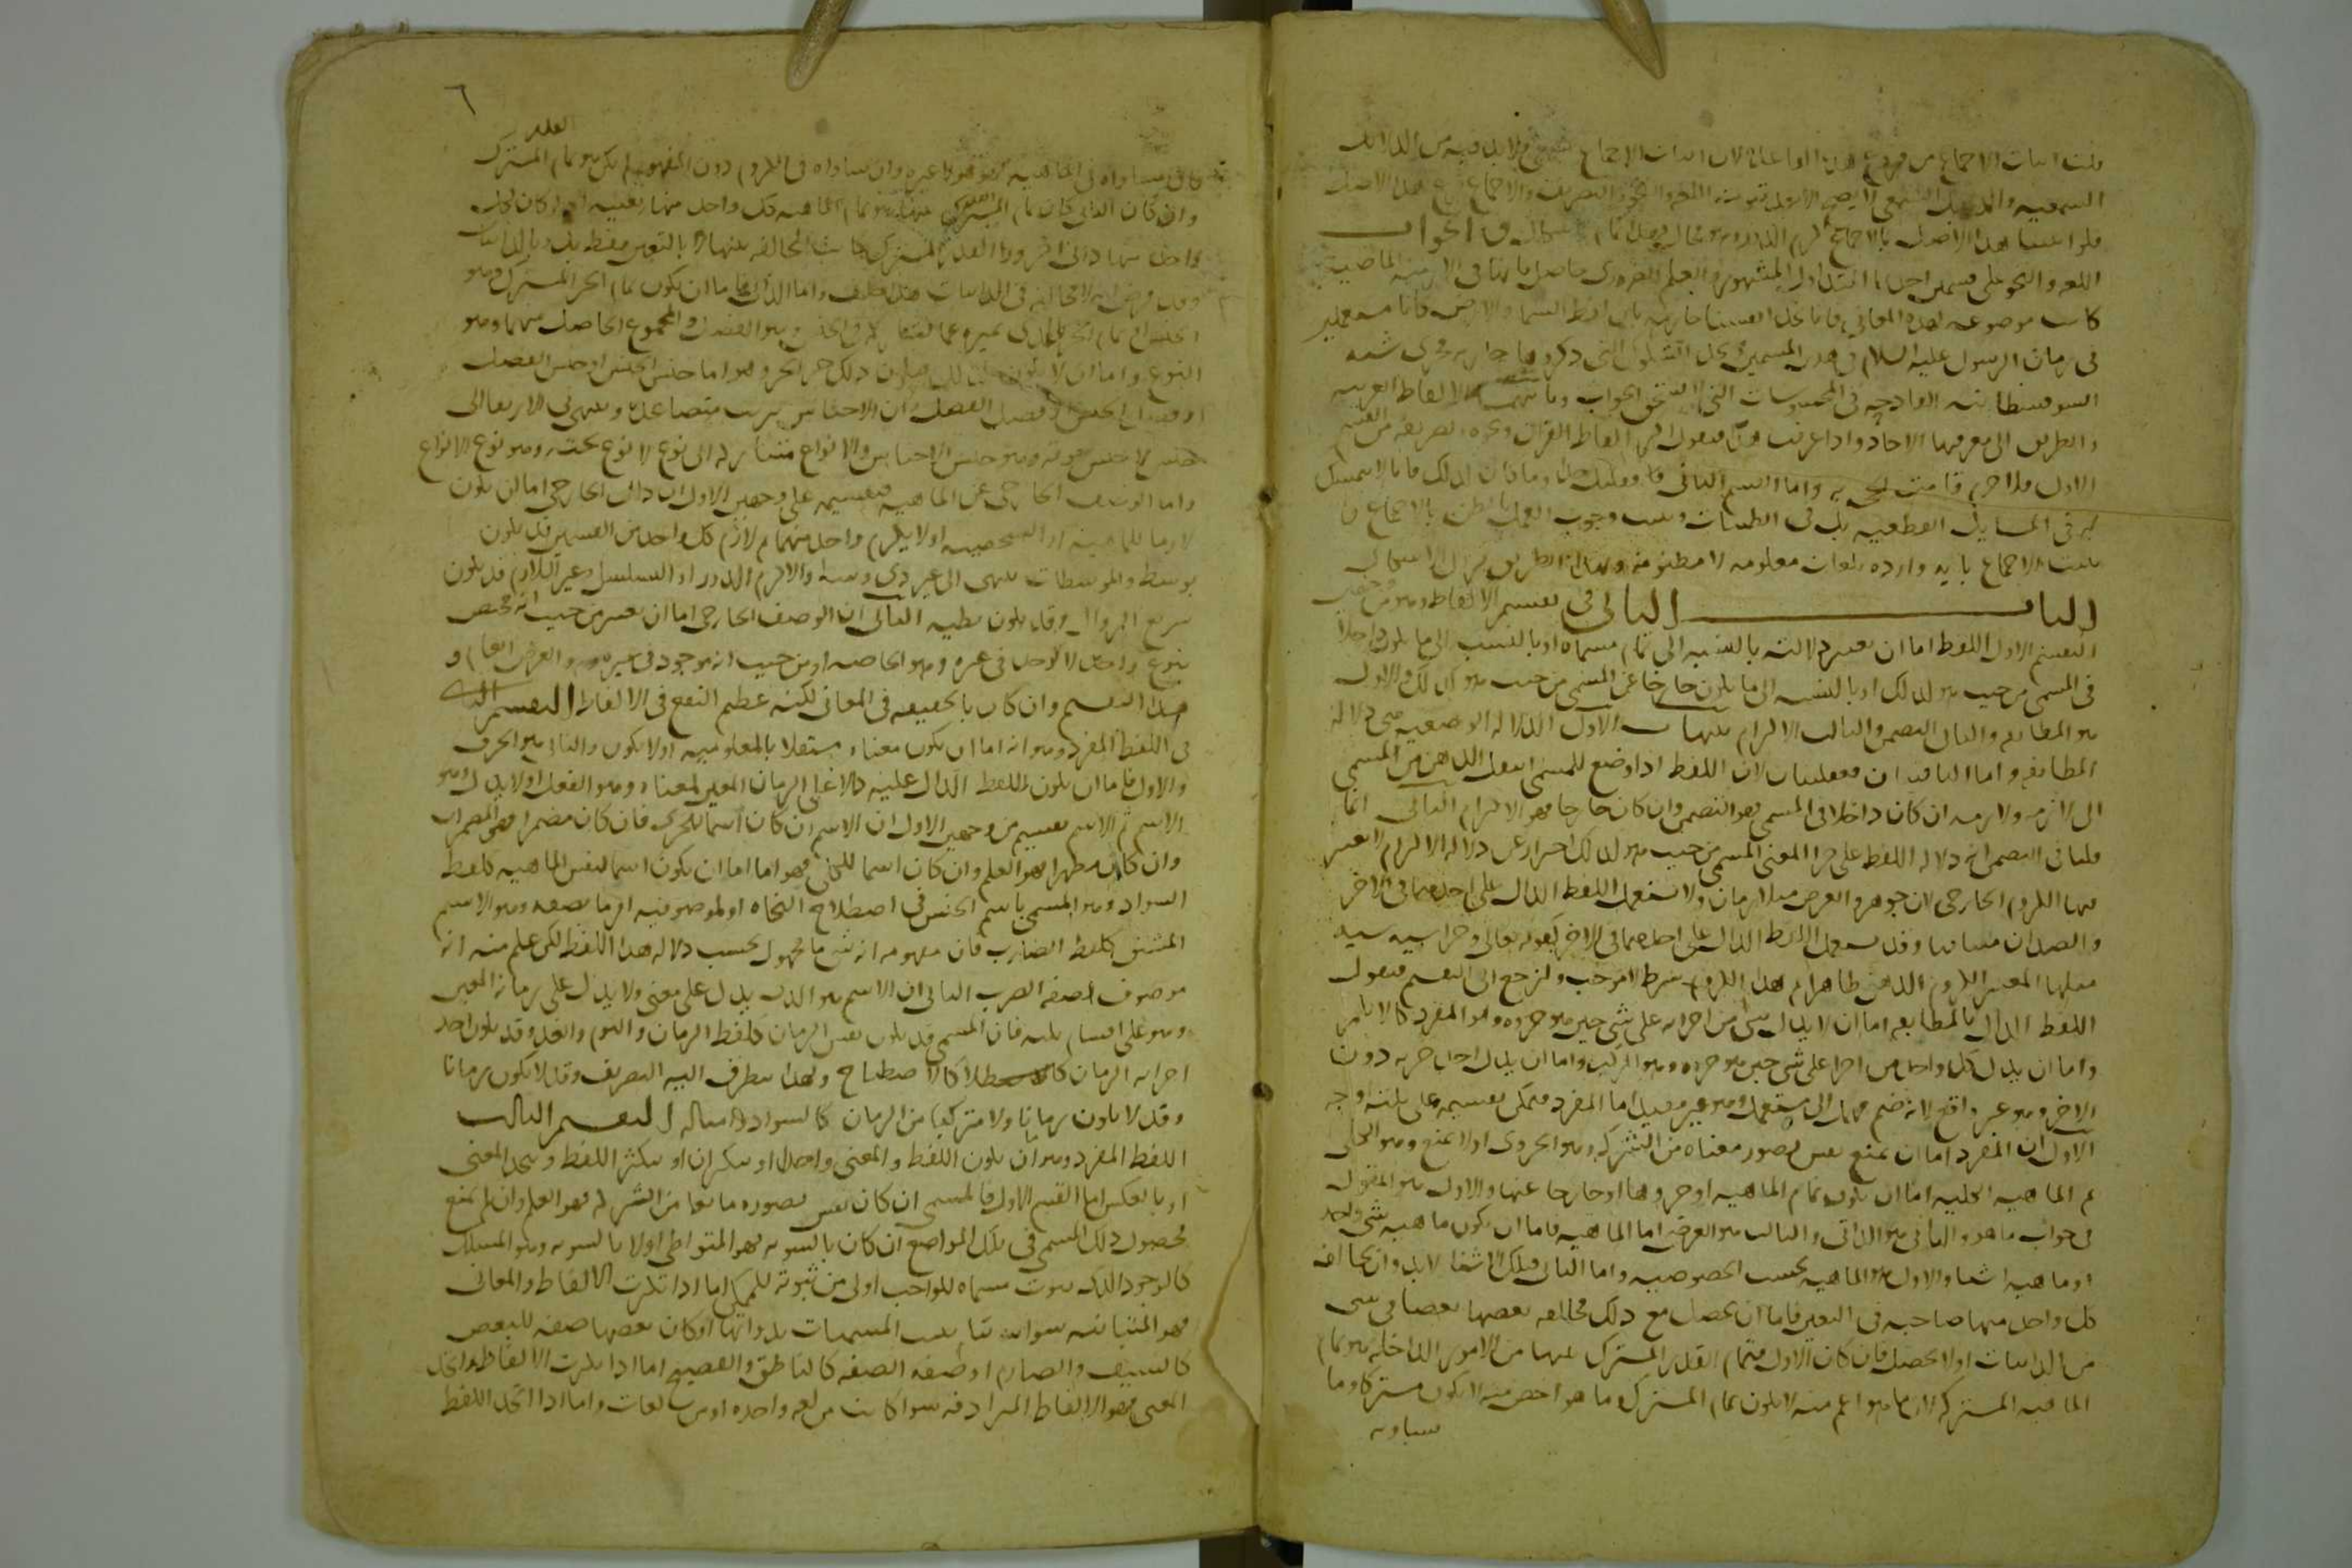 السمعية والدليل السمعي لا يصح الا بعد ثبوت اللغة والنحو والتصريف والاجماع فرع هذا الاصل
فلو اثبتنا هذا الاصل بالاجماع لزم الدور وهو محال والجواب
اللغه والنحو على قسمين احدهما المتداول المشهور والعلم الضروري حاصل بانها في الازمنة الماضية
كانت موضوعه لهذه المعاني فانا نجد انفسنا جازمة بان لفظ السما والارض كانا مستعملين
في زمان الرسول عليه السلام في هذين المسميين ونجد الشكوك التي ذكروها جارية مجرى شبه
السوفسطائية القادحة في المحسوسات التي لا تستحق الجواب وثانيهما الالفاظ الغريبه
والطريق الى معرفتها الاحاد واذا عرفت هذا فنقول اكثر الفاظ القران ونحوه وتصريفه من القسم
الاول فلا جرم قامت الحجة به واما القسم الثاني فقليل جدا وما كان كذلك فانا لا نتمسك
به في المسايل القطعيه بل في الظنيات ونثبت وجوب العمل بالظن بالاجماع و
نثبت الاجماع باية وارده بلغات معلومه لا مظنونة وبهذا الطريق يزول الاشكال
الباب الثاني في تقسيم الالفاظ وهو من وجهين
التقسيم الاول اللفظ اما ان تعتبر دلالته بالنسبة الى تمام مسماه او بالنسبة الى ما يكون داخلا
في المسمى من حيث هو كذلك او بالنسبه الى ما يكون خارجا عن المسمى من حيث هو كذلك والاول
هو المطابقه والثاني التضمن والثالث الالتزام تنبيهات الاول الدلالة الوضعيه هي دلالة
المطابقه واما الباقيتان فعقليتان لان اللفظ اذا وضع للمسمى انتقل الذهن من المسمى
الى لازمه ولازمه ان كان داخلا في المسمى فهو التضمن وان كان خارجا فهو الالتزام الثاني انما
قلنا في التضمن انه دلاله اللفظ على جزا المعنى المسمى من حيث هو كذلك احترازا عن دلاله الالتزام لا يعتبر
فيها اللزوم الخارجي لان جوهر والعرض متلازمان ولا يستعمل اللفظ الدال على احدهما في الاخر
والضدان متنافيان وقد يستعمل اللفظ الدال على احدهما في الاخر كقوله تعالى وجزا سيئه سيئه
مثلها المعتبر اللزوم الذهني ظاهرا ثم هذا اللزوم شرط لا موجب ولنرجع الى التقسيم فنقول
اللفظ الدال بالمطابقه اما ان لا يدل شي من اجزايه على شي حين هو جزوه وهو المفرد كالابكم
واما ان يدل كل واحد من اجزا على شي حين هو جزوه وهو المركب واما ان يدل احد جزيه دون
الاخر وهو غير واقع لانه ضم مهمل الى مستعمل وهو غير مفيد اما المفرد فيمكن تقسيمه على ثلثه اوجه
الاول ان المفرد اما ان يمنع نفس تصور معناه من الشركه وهو الجزوى او لا يمنع وهو الكلي
ثم الماهيه الكليه اما ان يكون تمام الماهيه او جزوها او خارجا عنها والاول هو المقول
في جواب ما هو والثاني هو الذاتي والثالث هو العرضي اما الماهيه فاما ان يكون ماهيه شي واحد
او ماهيه اشيا والاول هو الماهيه بحسب الخصوصيه واما الثاني فتلك الاشيا لا بد وان يخالف
كل واحد منها صاحبه في التعين فاما ان يحصل مع ذلك مخالفه بعضها بعضا في شي
من الذاتيات اولا يحصل فان كان الاول فتمام القدر المشترك بينها من الامور الداخله هو تمام
الماهيه المشتركه لان ما هو اعم منه لا يكون تمام المشترك وما هو اخص منه لا يكون مشتركا وما
يساويه
٦
النوع واما ان لا يكون كذلك فيكون ذلك جز الجزو وهو اما جنس الجنس او جنس الفصل
او فصل الجنس او فصل الفصل ثم ان الاجناس تترتب متصاعدة وتنتهي في الارتقا الى
جنس لا جنس فوقه وهو جنس الاجناس والانواع متنازله الى نوع لا نوع تحته وهو نوع الانواع
واما الوصف الخارجي عن الماهيه فتقسيمه على وجهين الاول ان ذلك الخارجي اما ان يكون
لازما للماهية او الشخصيه او لا يلزم واحد منهما ثم لازم كل واحد من القسمين قد يكون
بوسط والمتوسطات تنتهي الى غير ذي وسط والا لزم الدور او التسلسل وغير اللازم قد يكون
سريع الزوال وقد يكون بطيه الثاني ان الوصف الخارجي اما ان يعتبر من حيث انه مختص
بنوع واحد لا يوجد في غيره وهو الخاصه او من حيث انه موجود في غيره وهو العرض العام و
هذا التقسيم وان كان بالحقيقه في المعاني لكنه عظيم النفع في الالفاظ التقسيم الثاني
في اللفظ المفرد وهو انه اما ان يكون معناه مستقلا بالمعلوميه او لا يكون والثاني هو الحرف
والاول فاما ان يكون اللفظ الدال عليه دالا على الزمان المعين لمعناه وهو الفعل او لا يدل وهو
الاسم ثم الاسم تقسيم من وجهين الاول ان الاسم ان كان اسما للجزي فان كان مضمرا فهو المضمرات
وان كان مظهرا فهو العلم وان كان اسما للكلي فهو اما اما ان يكون اسما لنفس الماهيه كلفظ
السواد وهو المسمى باسم الجنس في اصطلاح النحاه او لموصوفيه امر ما بصفه وهو الاسم
المشتق كلفظ الضارب فان مفهومه انه شي ما مجهول بحسب دلاله هذا اللفظ لكن علم منه انه
موصوف بصفه الضرب الثاني ان الاسم هو الذي يدل على معنى ولا يدل على زمانه المعين
وهو على اقسام ثلثه فان المسمى قد يكون نفس الزمان كلفظ الزمان واليوم والغد وقد يكون احد
اجزايه الزمان كالاصطباح ولهذا يتطرف اليه التصريف وقد لا يكون زمانا
وقد لا يكون زمانا ولا متركبا من الزمان كالسواد وامثاله التقسيم الثالث
اللفظ المفرد وهو ان يكون اللفظ والمعنى واحدا او يتكثران او يتكثر اللفظ ويتحد المعنى
او بالعكس اما القسم الاول فالمسمى ان كان نفس تصوره مانعا من الشركه فهو العلم وان لم يمنع
فحصول ذلك المسمى في تلك المواضع ان كان بالسويه فهو المتواطي او لا بالسويه وهو المشكك
كالوجود الذي ثبوت مسماه للواجب اولى من ثبوته للممكن اما اذا تكثرت الالفاظ والمعاني
فهو المتباينه سوا تباينت المسميات بذواتها او كان بعضها صفه للبعض
كالسيف والصارم او صفه الصفه كالناطق والفصيح اما اذا تكثرت الالفاظ واتحد
المعنى فهو الالفاظ المترادفه سوا كانت من لغه واحده او من لغات واما اذا اتحد اللفظ